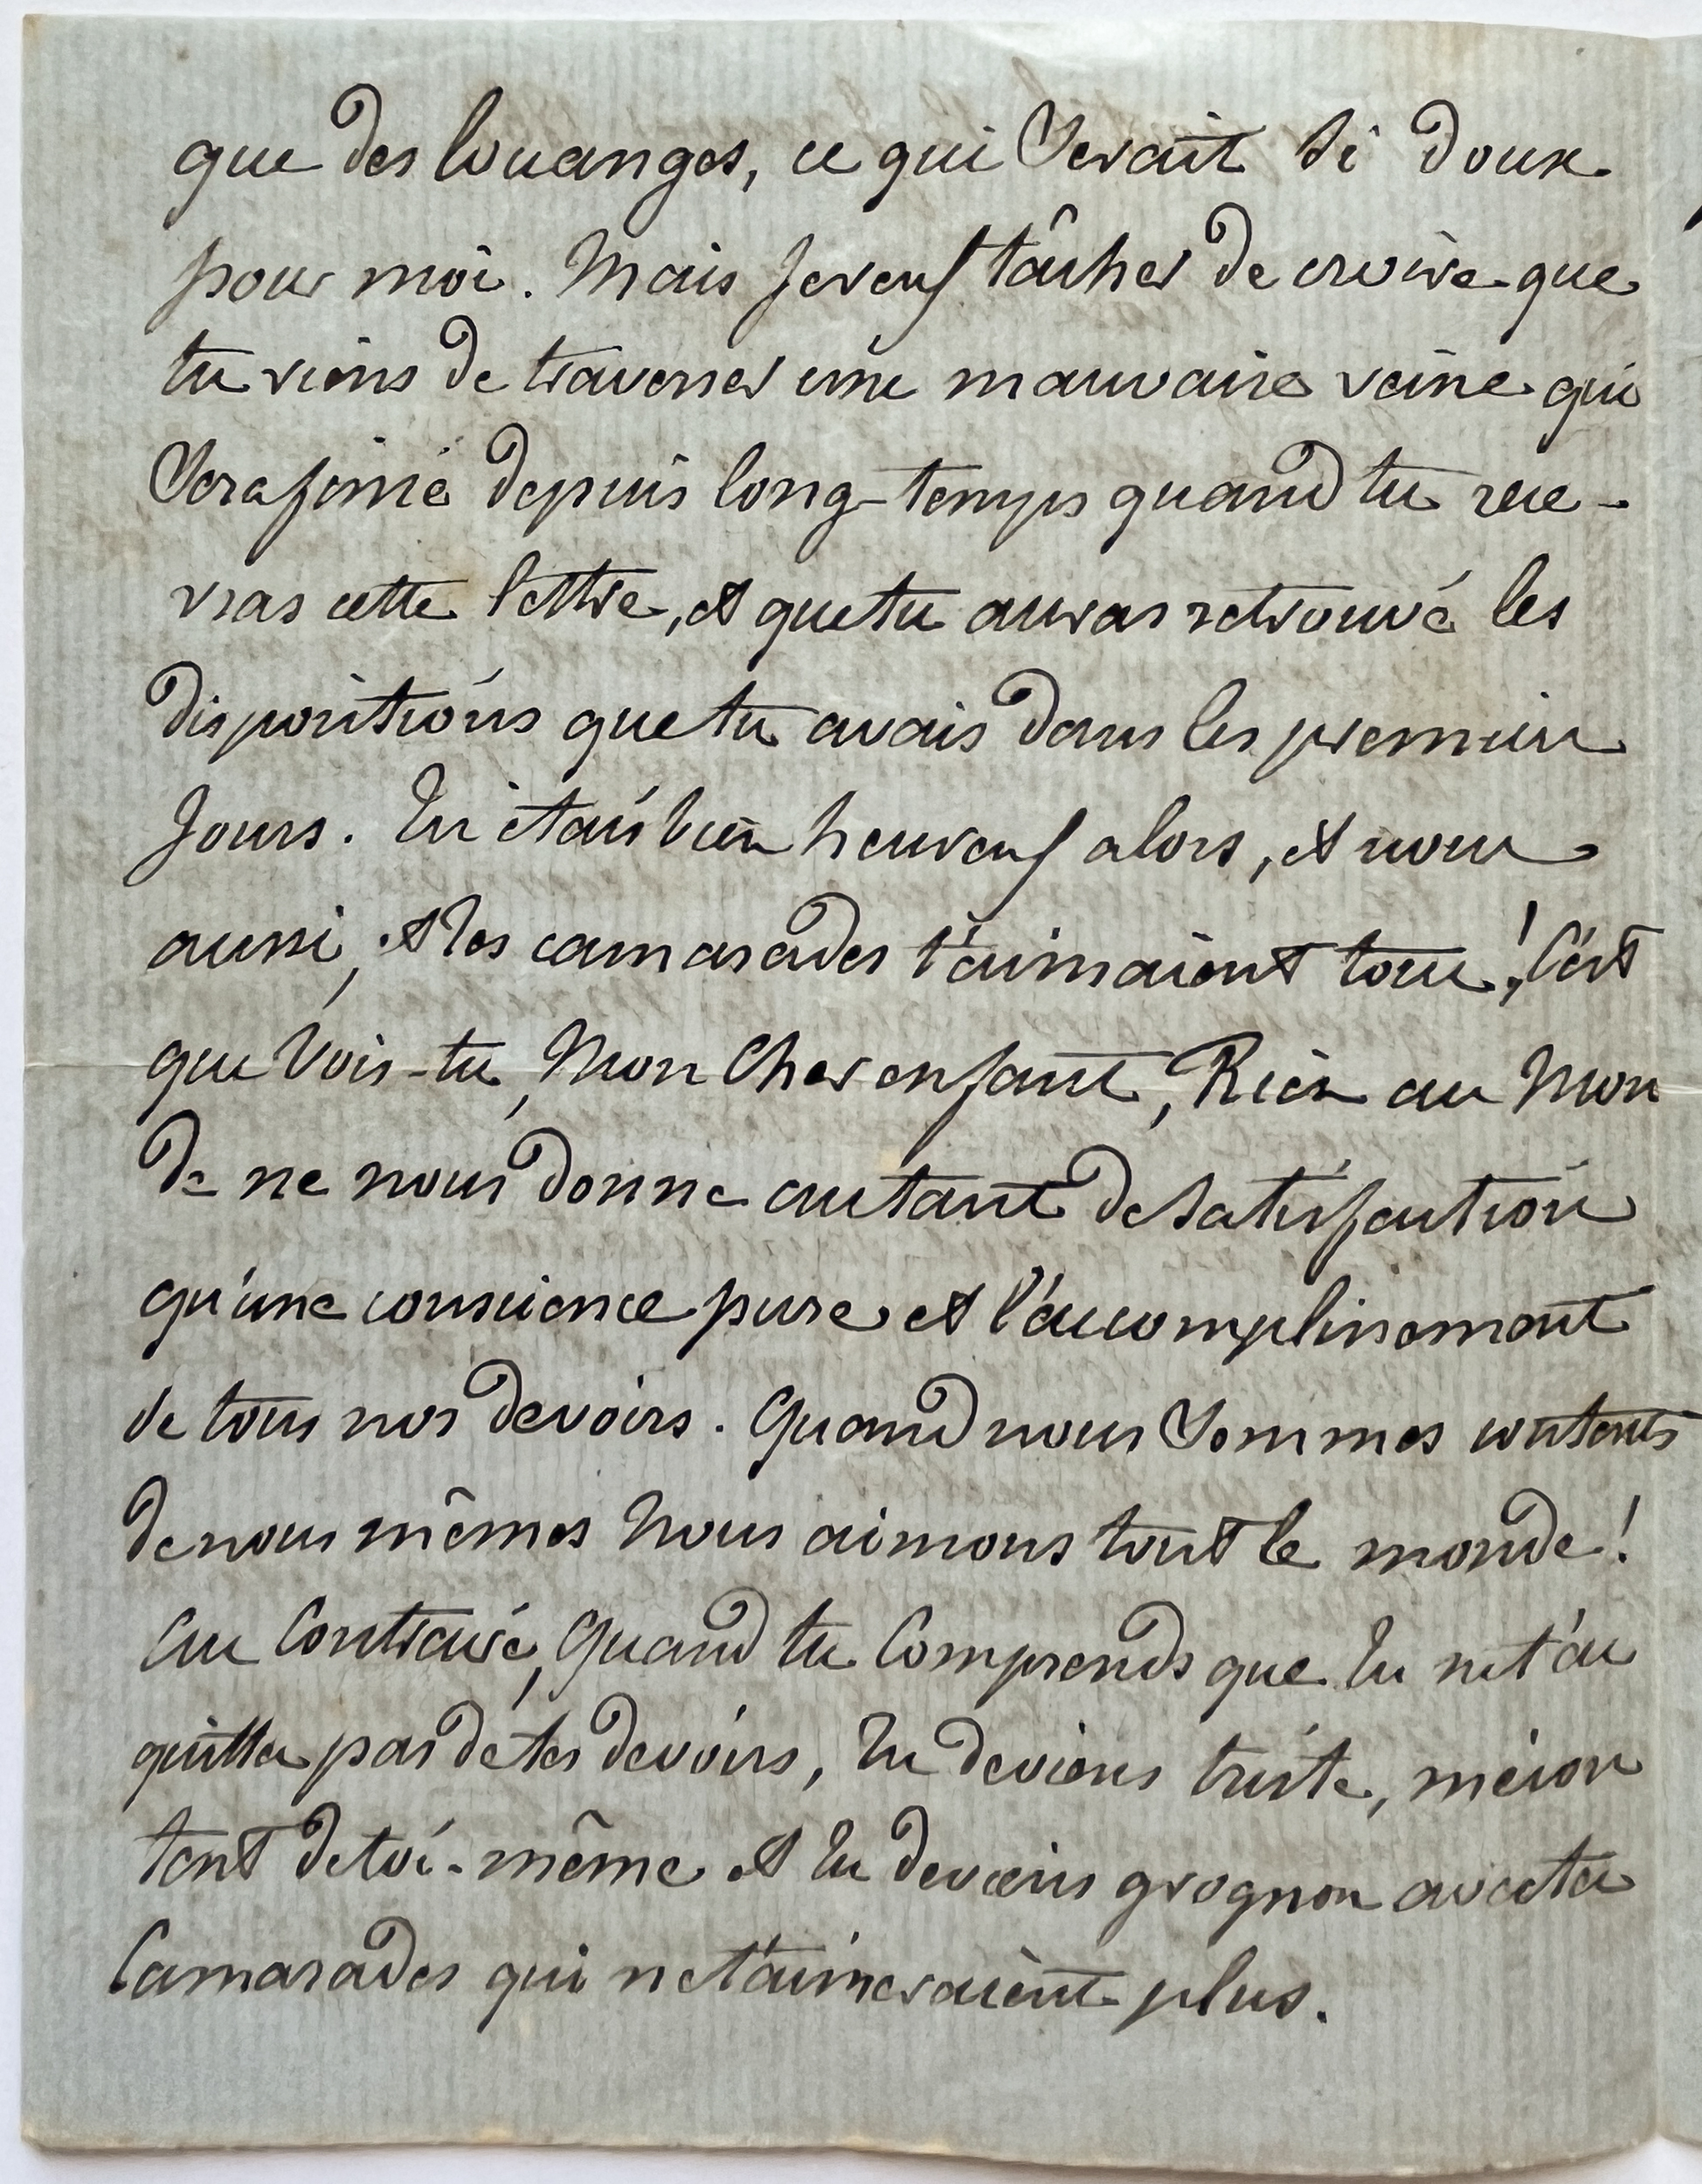 que des louanges, ce qui Serait Si doux
pour moi. Mais Je veux tâcher de croire que
tu viens de traverser une mauvaise veine qui
Sera finie depuis long-temps quand tu rece-
vras cette lettre, et que tu auras retrouvé les
dispositions que tu avais dans les premiers
Jours. Tu étais bien heureux alors, et nous
aussi, et les camarades t'aimaient tous! C'est
que Vois-tu, Mon Cher enfant, Rien au Mon
de ne nous donne autant de Satisfaction
qu'une conscience pure et l'accomplissement
de tous nos devoirs. Quand nous Sommes contents
de nous mêmes Nous aimons tout le monde!
Au Contraire, Quand tu Comprends que tu ne t'ac
quittes pas de tes devoirs, tu deviens triste, mécon
tent de toi-même et tu deviens grognon avec tes
Camarades qui ne t'aimeraient plus.